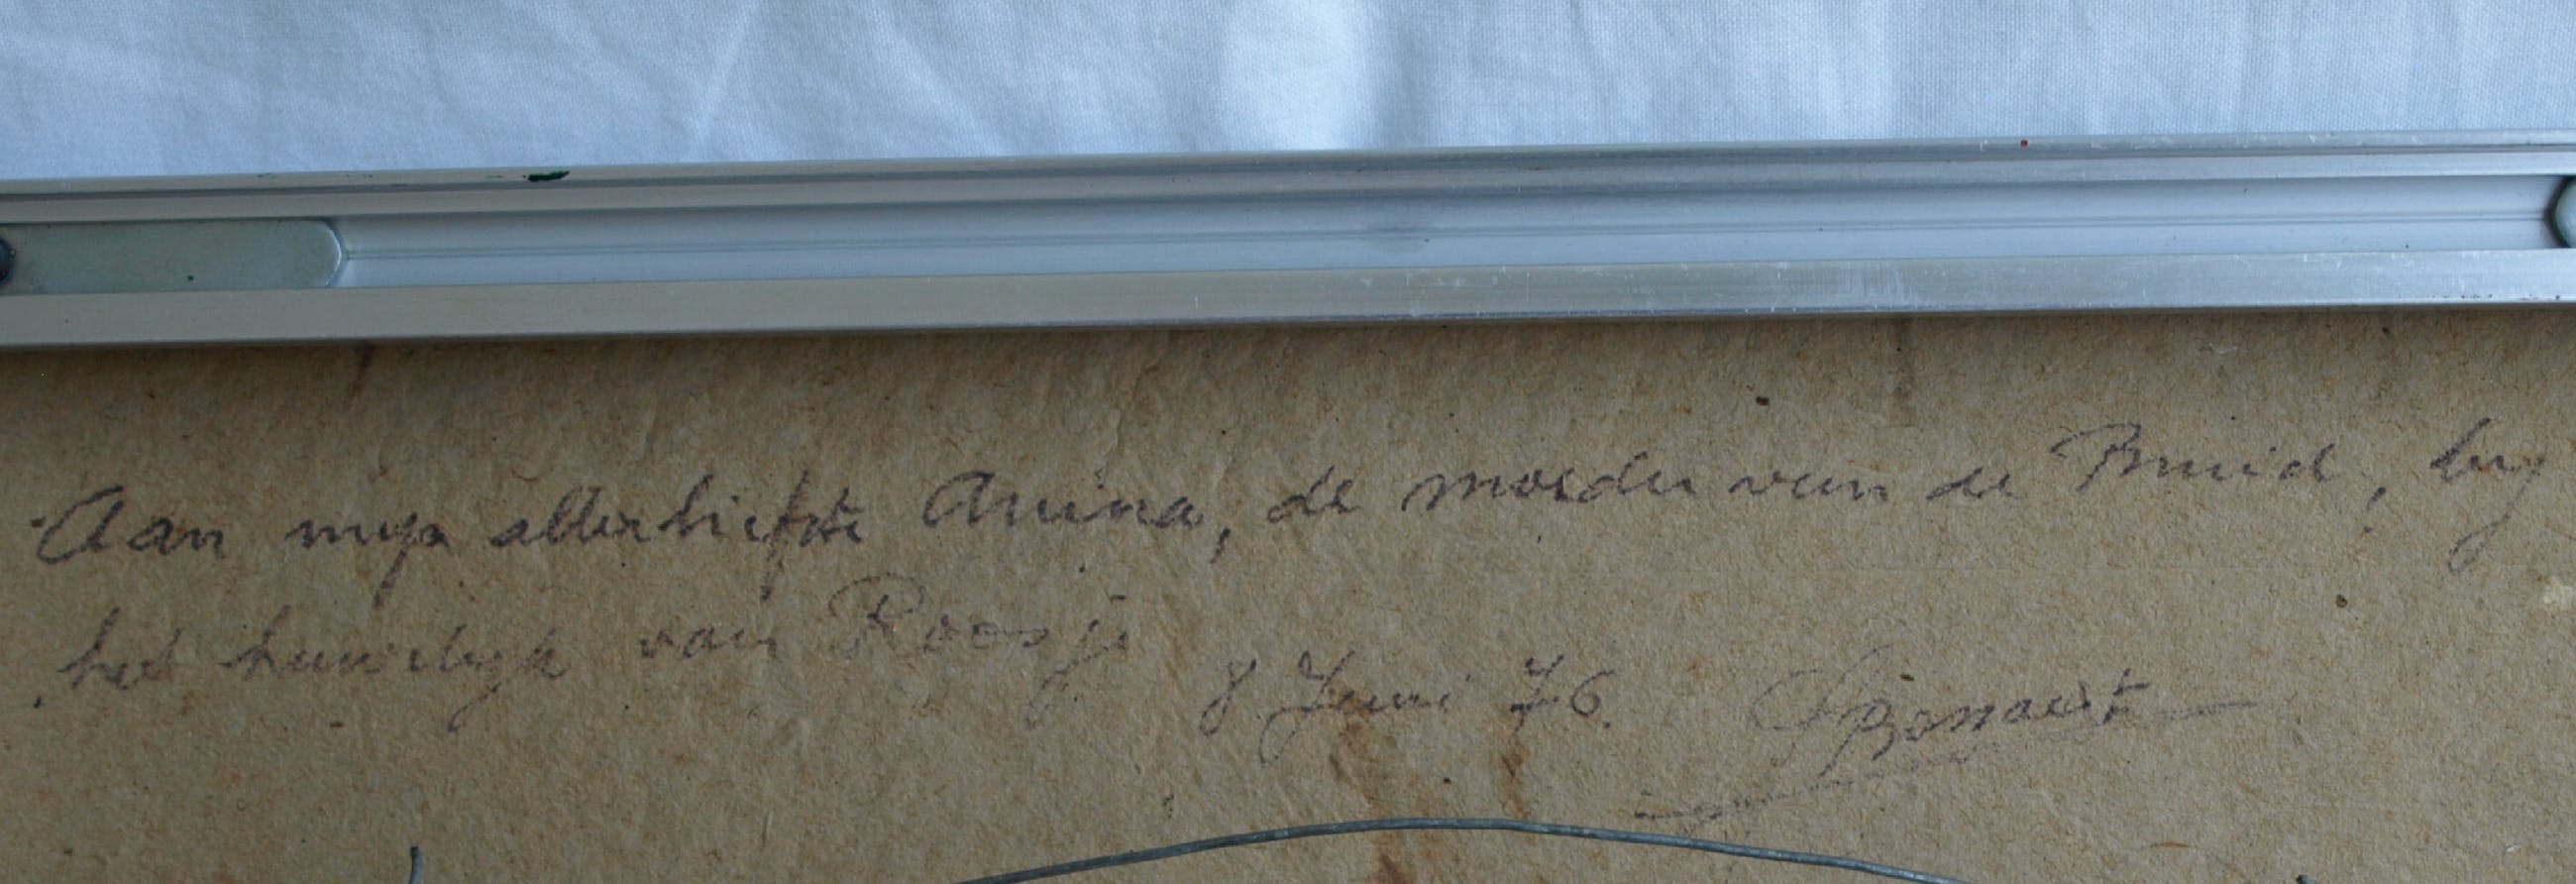 Aan mijn allerliefste Anina, de moeder van de Bruid, bij
het huwelijk van Roosje
8 Juni 76.